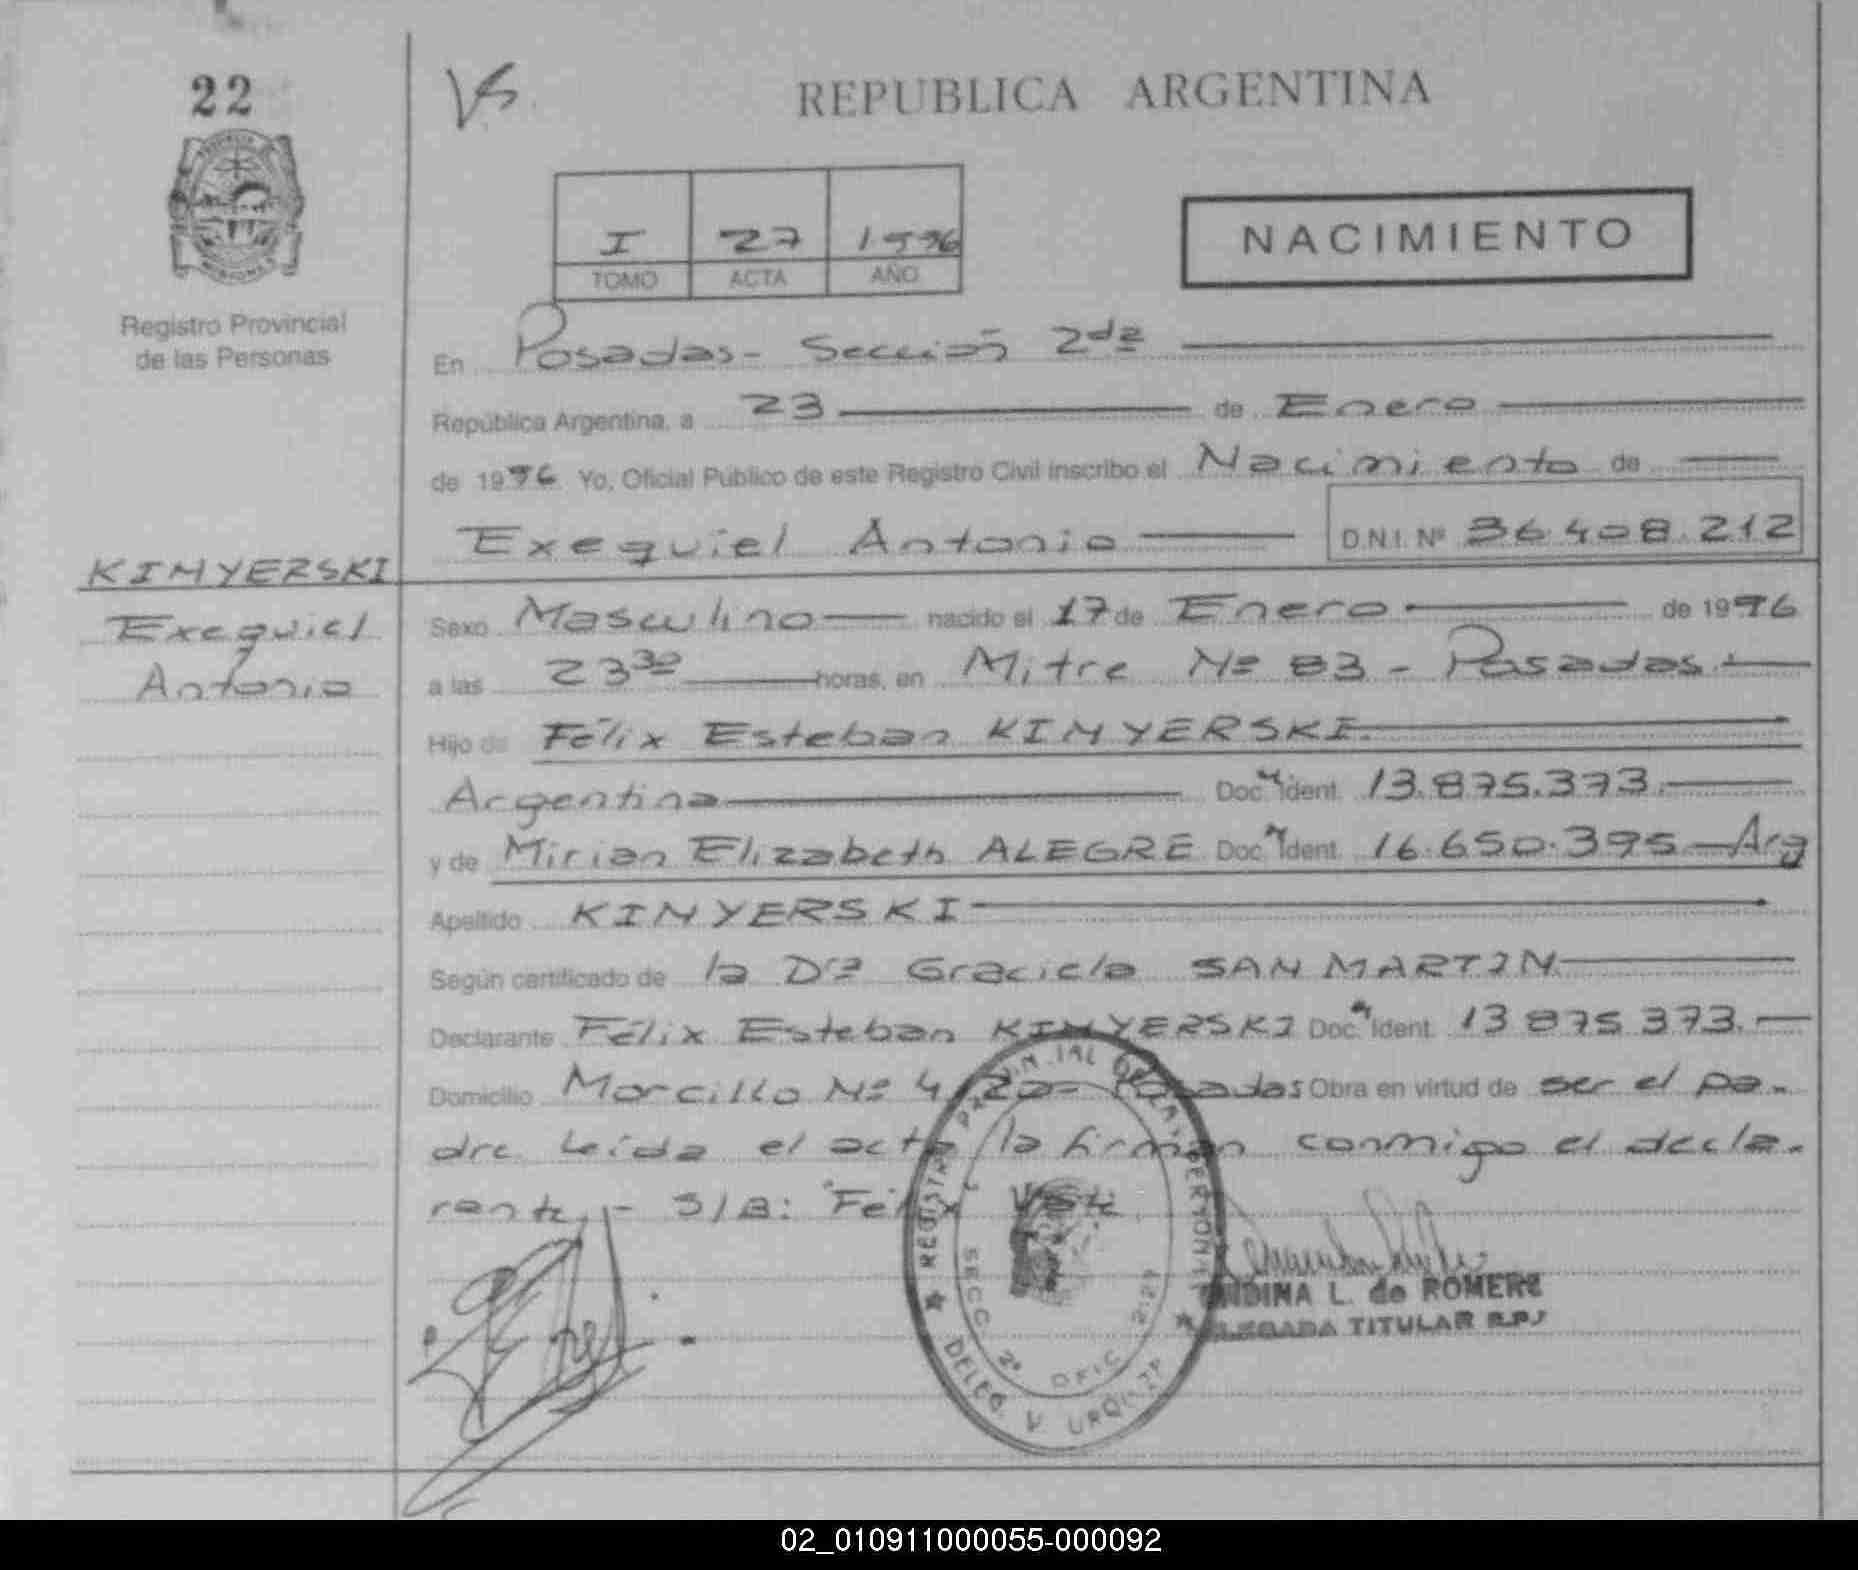 22
REPUBLICA ARGENTINA
I 27 1996
TOMO ACTA AÑO
NACIMIENTO
Registro Provincial
de las Personas
En Posadas - Sección 2da
República Argentina, a 23 de Enero
de 1996 Yo, Oficial Público de este Registro Civil inscribo el Nacimiento de
Exequiel Antonio D.N.I. Nº 36.408.212
KINYERSKI
Exequiel
Antonio
Sexo Masculino nacido el 17 de Enero de 1996
a las 23 30 horas, en Mitre Nº 83 - Posadas.
Hijo de Félix Esteban KINYERSKI
Argentina Doc. Ident. 13.875.373.
y de Mirian Elizabeth ALEGRE Doc. Ident. 16.650.395 - Arg
Apellido KINYERSKI
Según certificado de la Dra Graciela SAN MARTIN
Declarante Félix Esteban KINYERSKI Doc. Ident. 13 875 373.
Domicilio Morcillo Nº Posadas Obra en virtud de ser el pa-
dre. Leída el acta la firman conmigo el decla-
rante. - S/B: "Félix Vale
L. de ROMERO
TITULAR R.P.
SECC 2ª OFIC
DELEG. V URQUIZA
02_010911000055-000092